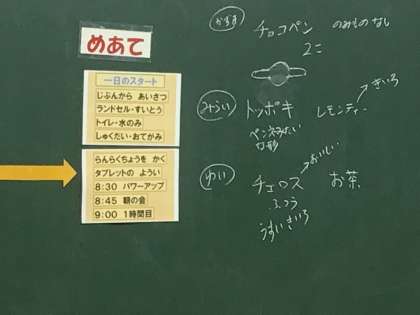 めあて
一日のスタート
じぶんから あいさつ
ランドセル・すいとう
トイレ・水のみ
しゅくだい・おてがみ
らんらくちょうを かく
タブレットの ようい
8:30 パワーアップ
8:45 朝の会
9:00 1時間目
チョコペン
のみものなし
2こ
みらい
トッポギ
レモンティー
きいろ
ペンネみたい
な形
ゆい
チュロス
おいしい
お茶
ふつう
うすいきいろ